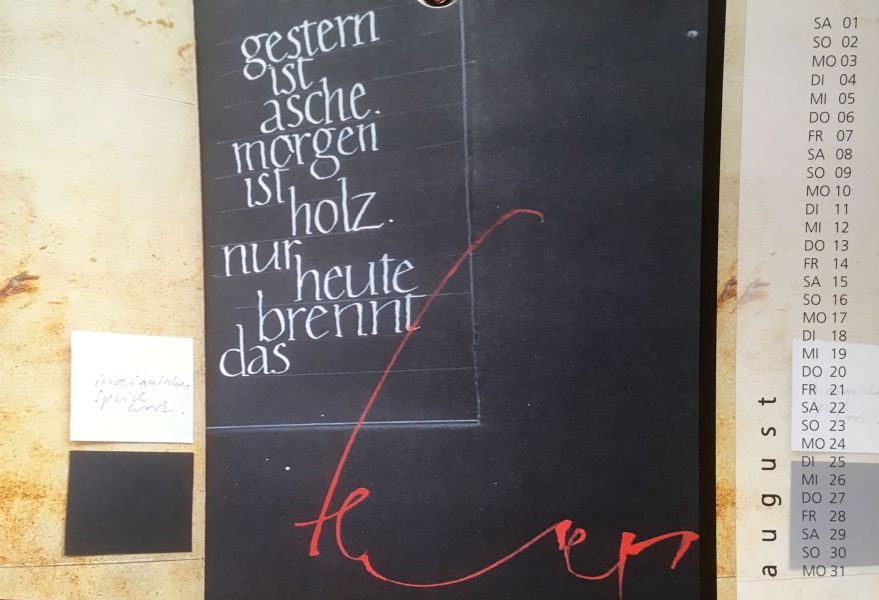 gestern
ist
asche.
morgen
ist
holz.
nur
heute
brennt
das
feuer
indianisches
sprich
wort!
august
SA 01
SO 02
MO 03
DI 04
MI 05
DO 06
FR 07
SA 08
SO 09
MO 10
DI 11
MI 12
DO 13
FR 14
SA 15
SO 16
MO 17
DI 18
MI 19
DO 20
FR 21
SA 22
SO 23
MO 24
DI 25
MI 26
DO 27
FR 28
SA 29
SO 30
MO 31